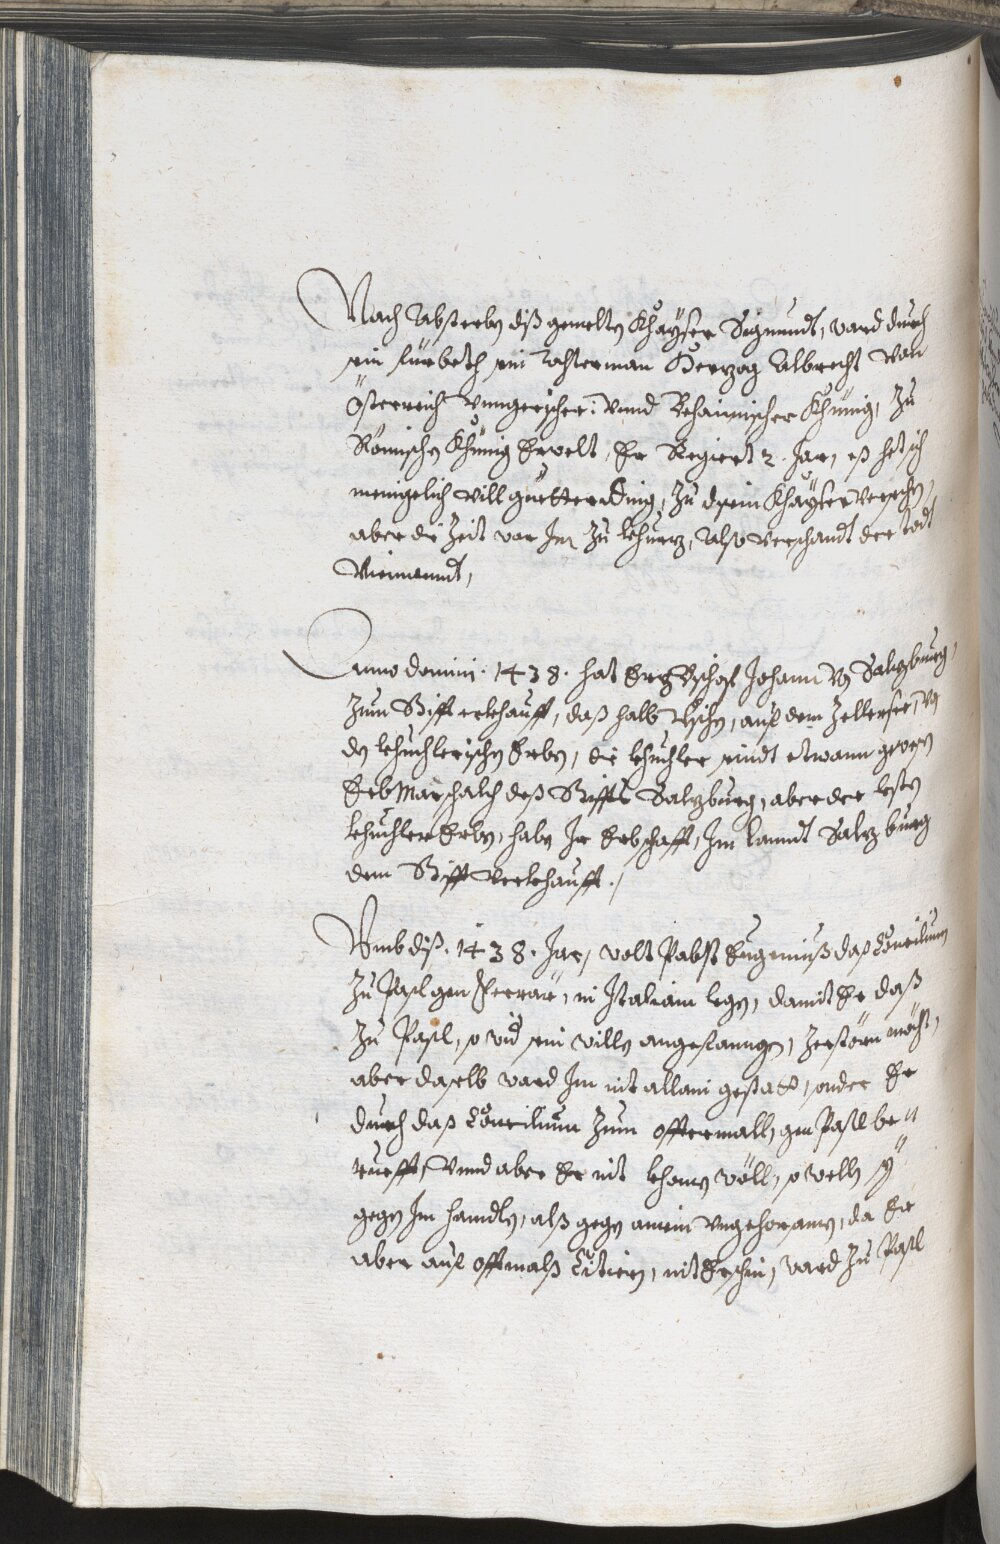 Nach Absterben diß gemelten Khaÿser Sigmundt, ward durch
sein fürbeth sein Tochterman Herzog Albrecht von
Össterreich Vngerischer. Vnnd Behaimischer Khünig, zu
Römischen Khünig Erwelt, Er Regiert 2. Jar, eß het sich
menigelich vill guetter Ding, zu disem Khaÿser versechen,
aber die Zeit war Im zu khurz, Also verschandt der todt
Niemanndt,
Anno domini. 1438. hat Erzbischof Johann von Salzburg,
zum Stifft erkhaufft, daß halb Vischen, auf dem Zellersee, von
den khuchlerischen Erben, die khuchler seindt etwann gewesen
Erb Marschalch deß Stiffts Salzburg, aber der lesten
khuchler Erben, haben Ir Erbschafft, Im lanndt Salzburg
dem Stifft verkhaufft./
Vmb diß. 1438. Jar, wolt Pabst Eugeniuß daß Concilium
zu Pasl gen Ferrar, in Italiam legen, damit Er daß
zu Pasl, so wid sein willen angefanngen, zerstörn möcht,
aber daselb ward Im nit allain gestatt, sonder Er
durch daß Concilium zum offtermalln, gen Pasll be„
ruefft, Vnnd aber Er nit khomen wöll, so wellen sÿ
gegen Im handlen, alß gegen ainem Vngehorsamen, da Er
aber auf offtmalß Citiern, nit Erschin, ward zu Pasl